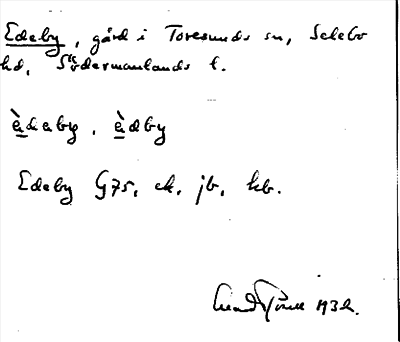 Edeby, gård i Toresunds sn, Selebo
hd, Södermanlands l.
èdeby, èdby
Edeby G75, ek, jb, kb.
1932.